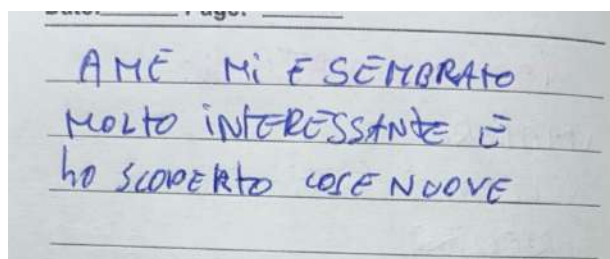 Date: Page:
AME MI E SEMBRATO
MOLTO INTERESSANTE E
ho SCOPERTO COSE NUOVE